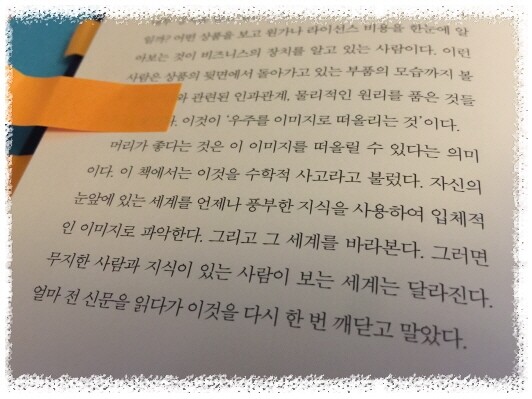 일까? 어떤 상품을 보고 원가나 라이선스 비용을 한눈에 알
아보는 것이 비즈니스의 장치를 알고 있는 사람이다. 이런
사람은 상품의 뒷면에서 돌아가고 있는 부품의 모습까지 볼
관련된 인과관계, 물리적인 원리를 품은 것들
이것이 ‘우주를 이미지로 떠올리는 것’이다.
머리가 좋다는 것은 이 이미지를 떠올릴 수 있다는 의미
이다. 이 책에서는 이것을 수학적 사고라고 불렀다. 자신의
눈앞에 있는 세계를 언제나 풍부한 지식을 사용하여 입체적
인 이미지로 파악한다. 그리고 그 세계를 바라본다. 그러면
무지한 사람과 지식이 있는 사람이 보는 세계는 달라진다.
얼마 전 신문을 읽다가 이것을 다시 한 번 깨닫고 말았다.